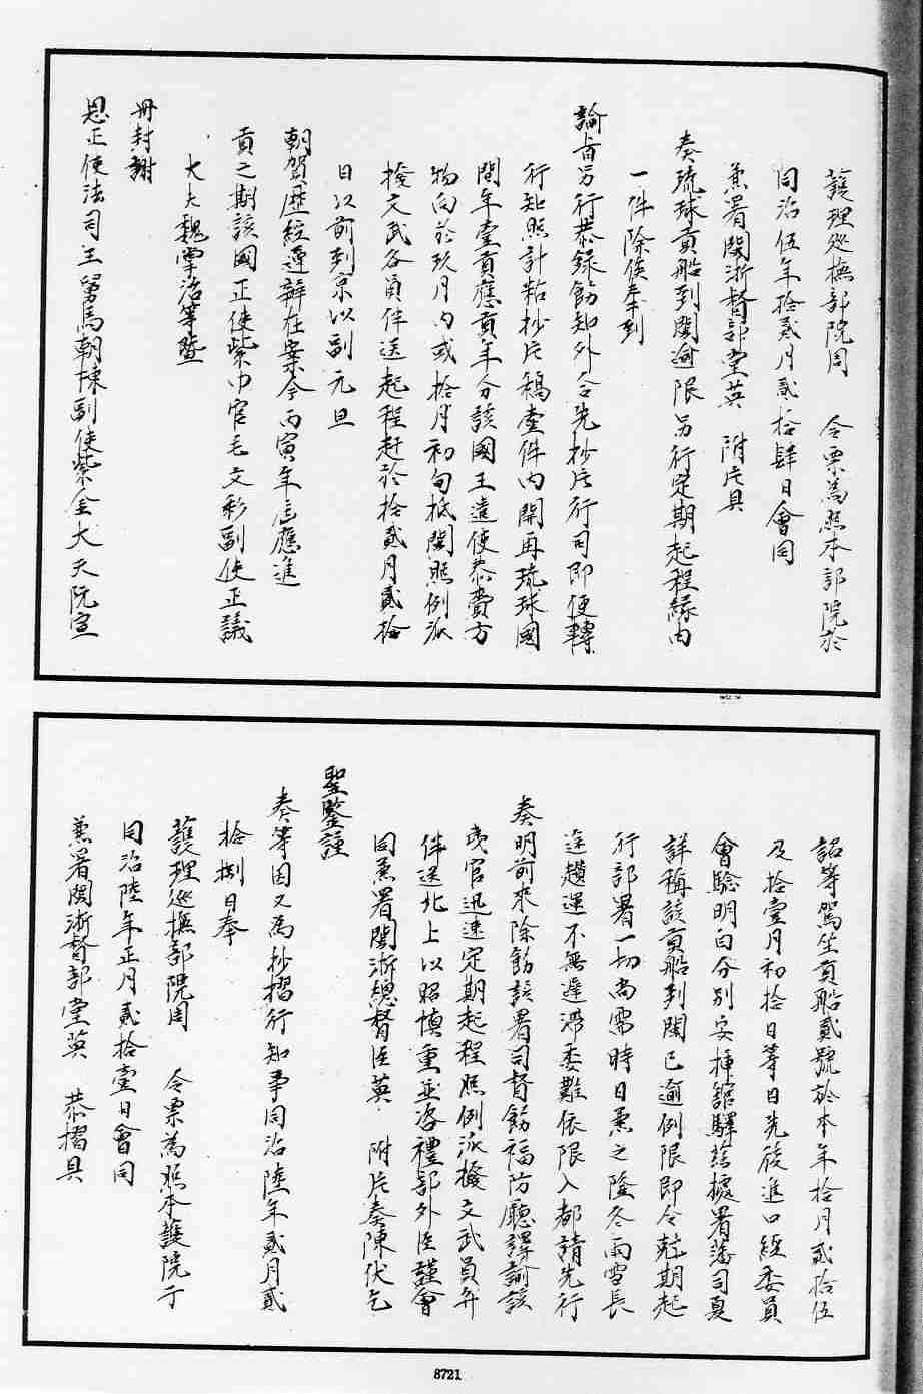 護理巡撫部院周　令票為照本部院於
同治伍年拾貳月貳拾肆日會同
兼署閩浙督部堂英　附片具
奏琉球貢船到閩逾限另行定期起程緣由
一件除俟奉到
諭旨另行恭錄飭知外合先抄片行司即便轉
行知照計粘抄片稿壹件內開再琉球國
間年壹貢應貢年分該國王遣使恭賫方
物向於玖月內或拾月初旬抵閩照例派
撥文武各員伴送起程赶於拾貳月貳拾
日以前到京以副元旦
朝賀歷經遵辦在案今丙寅年應進
貢之期該國正使紫巾官毛文彩副使正議
大夫魏掌治等暨
冊封謝
恩正使法司王舅馬朝棟副使紫金大夫阮宣
詔等駕坐貢船貳號於本年拾月貳拾伍
及拾壹月初拾日等日先後進口經委員
會驗明白分別安揷館驛茲據署藩司夏
詳稱該貢船到閩已逾例限即令趂期起
行部署一切尚需時日兼之隆冬雨雪長
途趲運不無遲滯委難依限入都請先行
奏明前來除飭該署司督飭福防廳譯諭該
夷官迅速定期起程照例派撥文武員弁
伴送北上以昭慎重並咨禮部外臣謹會
同兼署閩浙總督臣英　附片奏陳伏乞
聖鑒謹
奏等因又為抄摺行知事同治陸年貳月貳
拾捌日奉
護理巡撫部院周　令票為照本護院于
同治陸年正月貳拾壹日會同
兼署閩浙督部堂英　恭摺具
8721